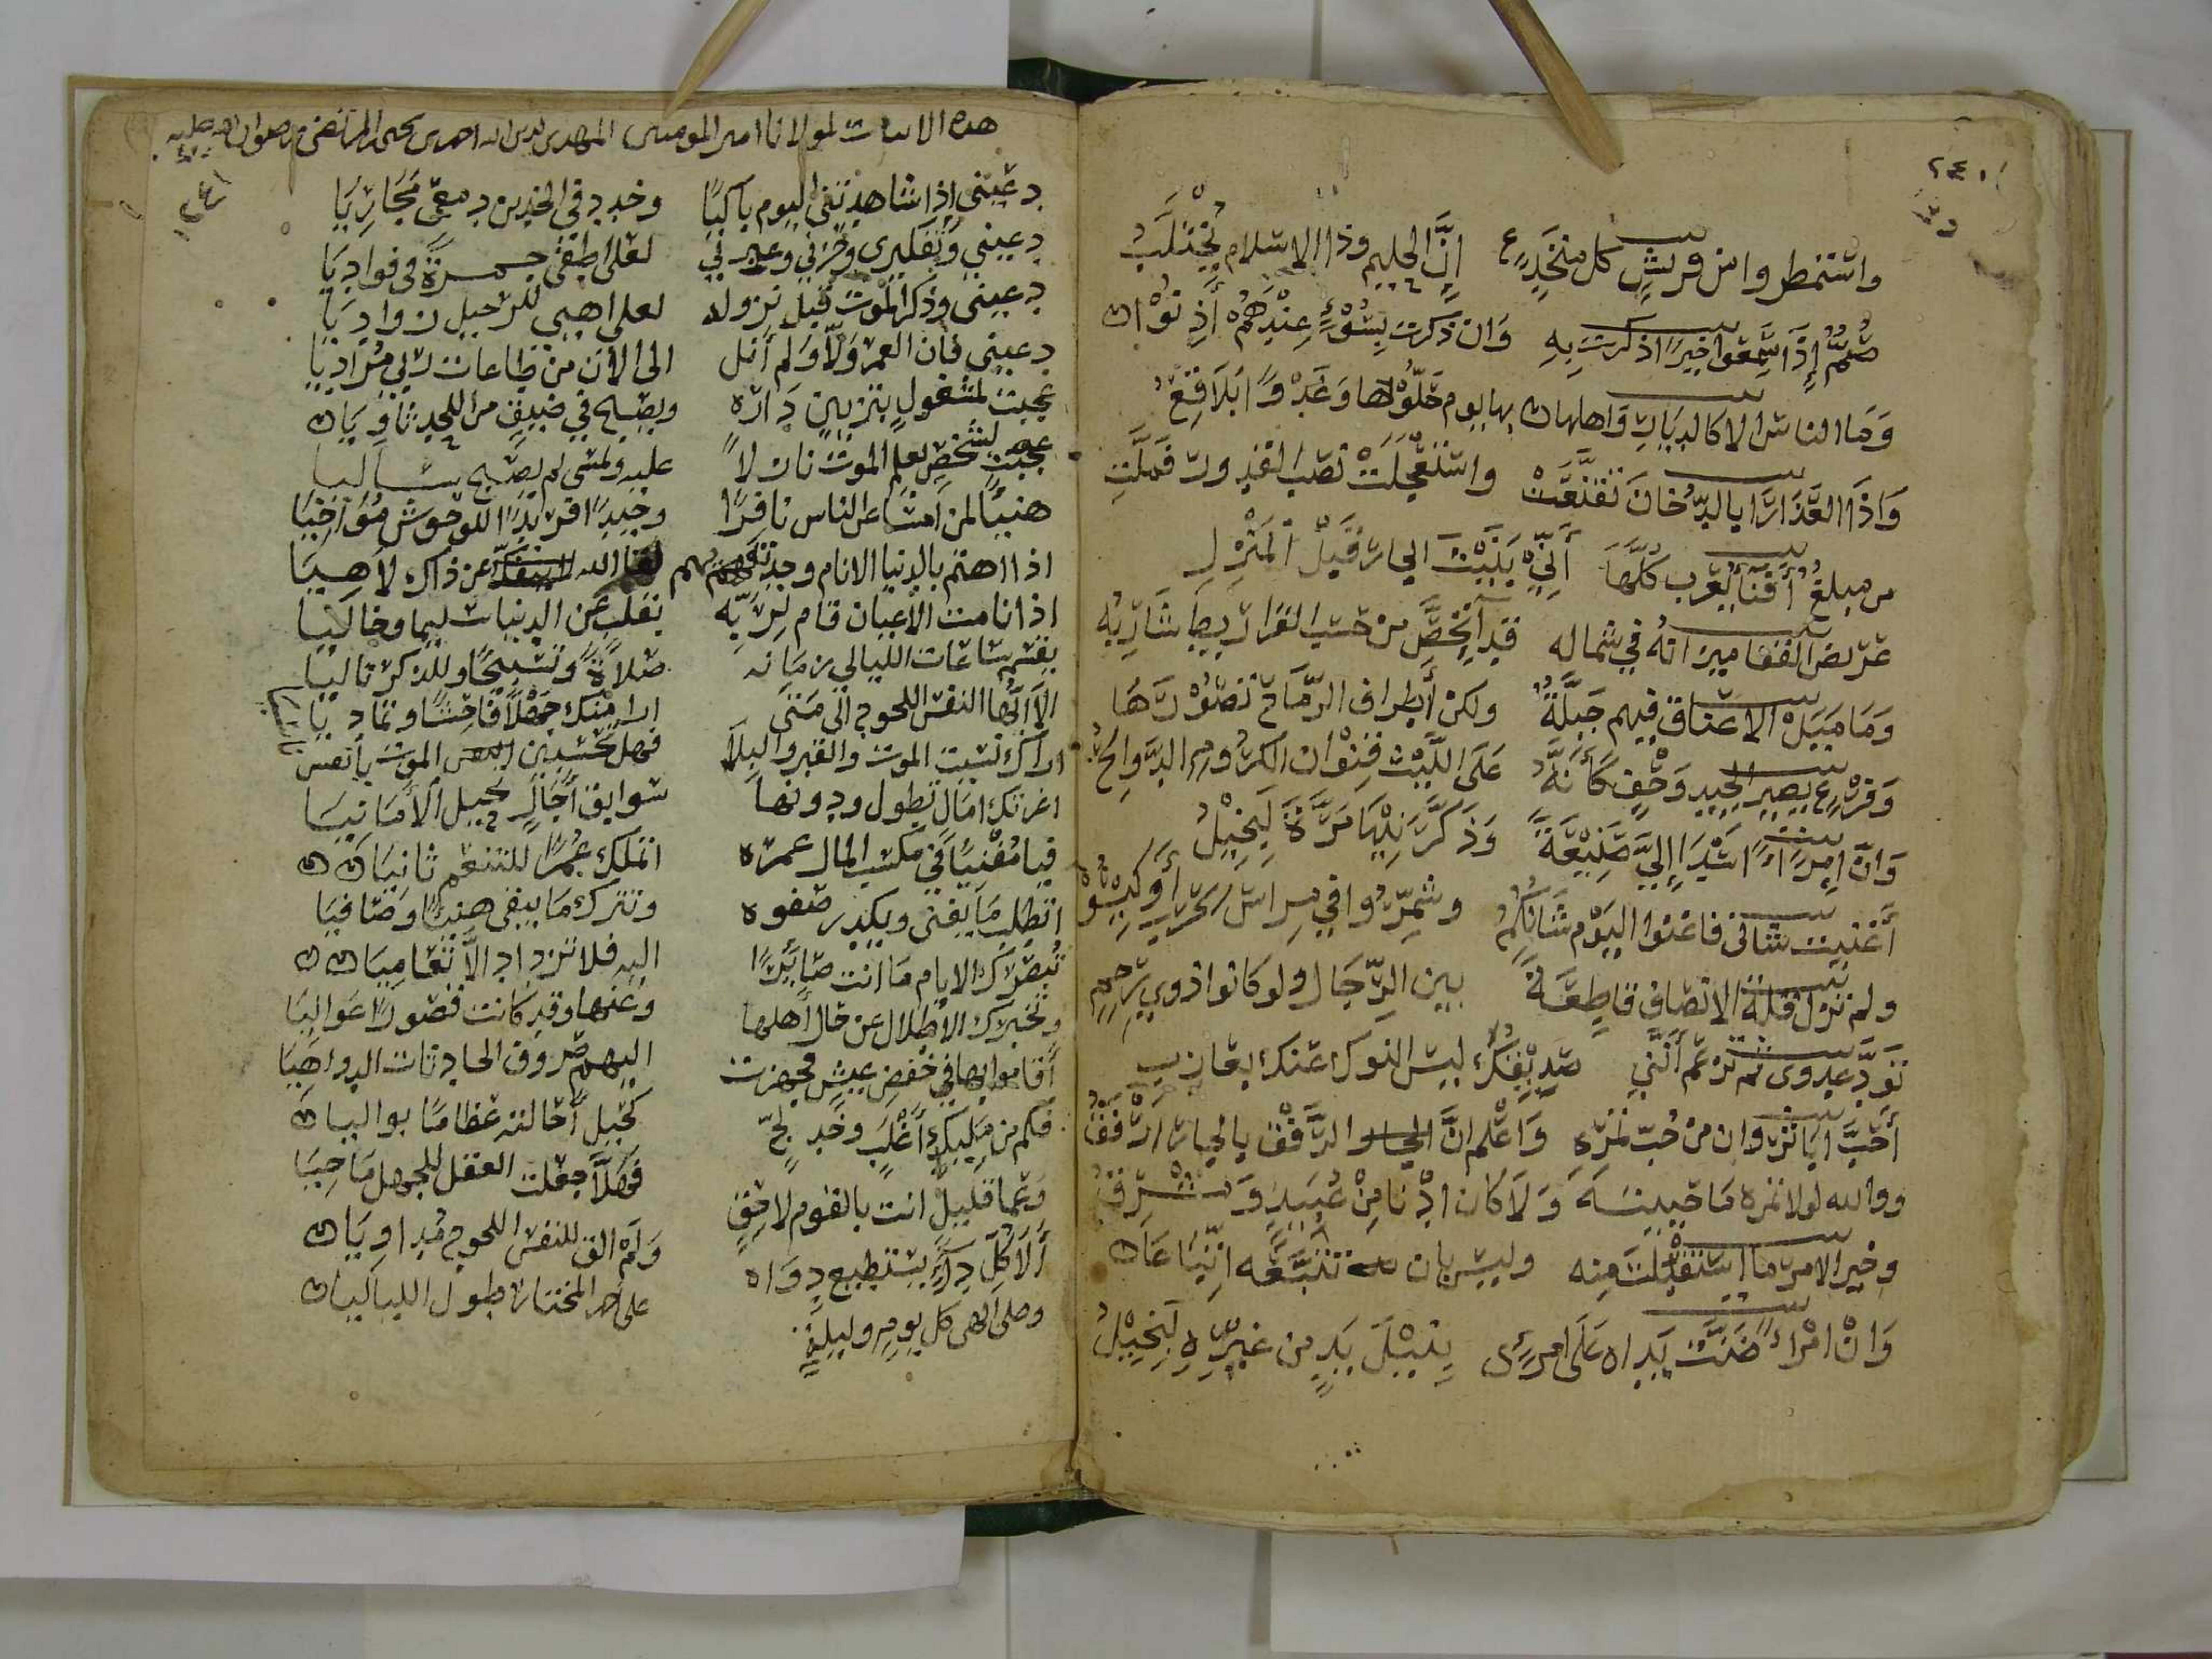 ٢٤٠
واستمطروا من قريش كل منخدع إن الحليم وذا الاسلام يختلب
بيت
صُمٌّ إذا سمعوا خيرًا ذكرت به وان ذكرت بسوء عندهم أذنوا
بيت
وما الناس الا كالديار واهلها بها يوم حلّوها وغدوًا بلاقع
بيت
واذا العذارا بالدخان تقنّعت واستعجلت نصب القدور فملّت
بيت
من مبلغ أفنا يعرب كلها أنّي بنيت الجار قبل المنزل
بيت
عريض القفا ميزانه في شماله قد انحصّ من حسب القراريط شاربه
بيت
وما ميَل الاعناق فيهم جبلّة ولكن أطراف الرماح تصورها
بيت
وفرع يصير الجيد وحف كأنه على الليت قنوان الكروم الدوالح
بيت
وان امرًا اسدا إليّ صنيعة وذكّرنيها مرّة لبخيل
بيت
أغنيت شاني فاغنوا اليوم شانكم وشمّروا في مراس الحرب أو كيسوا
بيت
ولم تزل قلة الانصاف قاطعة بين الرجال ولو كانوا ذوي رحم
بيت
تودّ عدوى ثم تزعم أنني صديقك ليس النوك عنك بعازب
بيت
أحبّ ابا ثروان من حبّ تمره واعلم انّ الرفق بالجار ارفق
ووالله لولا تمره ما حببته ولا كان ادنا من عبيد ومشرق
وخير الامر ما استقبلت منه وليس بان تتبعه اتّباعا
بيت
وان امرأً ضنت يداه على امرئ بنيل يد من غيره لبخيل
هذه الابيات لمولانا امير المومنين المهدي لدين الله احمد بن يحيى المرتضى صلوات الله عليه
دعيني إذا شاهدتني اليوم باكيًا وخدد في الخدين دمعي مجاريا
دعيني وتفكيري وحزني وعبرتي لعلي اطفي جمرة في فواديا
دعيني وذكر الموت قبل نزوله لعلي اهيي للرحيل زواديا
دعيني فان العمر ولّا ولم أنل الى الان من طاعات ربي مراديا
عجبت لمشغول بتزيين داره ويصبح في ضيق من اللحد ثاويا
عجبت لشخص يعلم الموت نازلًا عليه ولمسى لم يصبح ساليا
هنيئًا لمن امسا عن الناس نافرًا وحيدًا فريدًا للوحوش مواخيا
اذا اهتم بالدنيا الانام وجدتهم عن ذاك لاهيا
اذا نامت الأعيان قام لربه تقلب عن الدنيات ليما وخاليا
يقسم ساعات الليالي زمانه صلاة وتسبيحًا وللذكر تاليا
الا أيها النفس اللحوح الى متى ارا منك جهلًا فاحشًا وتماديا
اراك نسيت الموت والقبر والبلا فهل تحسبين الموت يا نفس
اغرتك امال تطول ودونها سوابق أجال تحيل الأمانيا
فيا مفنيًا في مكسب المال عمره اتملك عمرًا للتنعم ثانيا
اتطلب ما يفنى ويكدر صفوه وتترك ما يبقى هنيئًا وصافيا
تبصرك الايام ما انت صائرًا اليه فلا تزداد الّا تعاميا
وتخبرك الاطلال عن حال أهلها وعنها وقد كانت قصورًا عواليا
أقاموا بها في خفض عيش فجهزت اليهم صروف الحادثات الدواهيا
فكم من مليك أغلب وخد لجّ كحيل أحالته عظامًا بواليا
وعما قليل انت بالقوم لاحق فهلّا جعلت العقل للجهل ماحيا
ألا كل داء يستطيع دواه ولم الق للنفس اللحوح مداويا
وصلى الهى كل يوم وليلة على أحمد المختار طول اللياليا